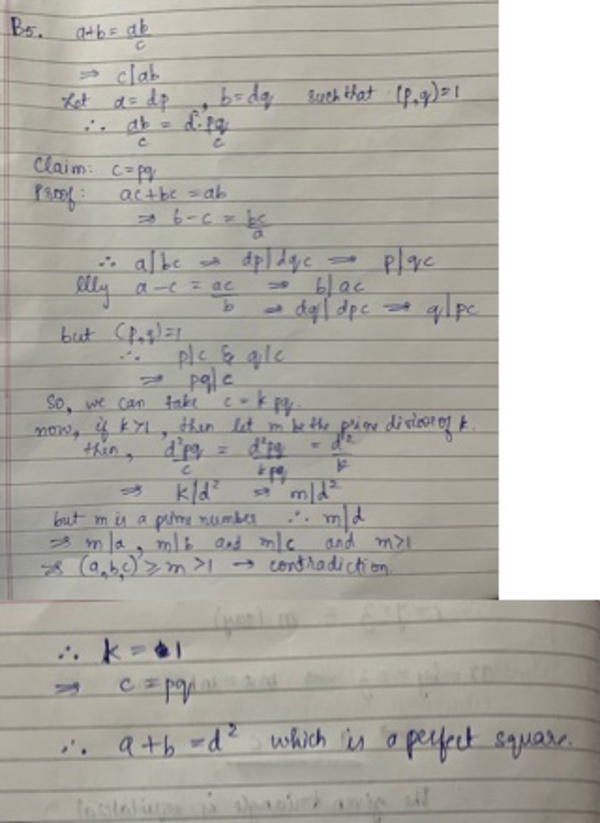 B5. a+b = ab/c
⇒ c|ab
Let a = dp , b = dq such that (p,q)=1
∴ ab/c = d²pq/c
Claim: c = pq
Proof: ac+bc = ab
⇒ b-c = bc/a
∴ a|bc ⇒ dp|dqc ⇒ p|qc
lly a-c = ac/b ⇒ b|ac
⇒ dq|dpc ⇒ q|pc
but (p,q)=1
∴ p|c & q|c
⇒ pq|c
So, we can take c = kpq.
now, if k>1, then let m be the prime divisor of k.
then, d²pq/c = d²pq/kpq = d²/k
⇒ k|d² ⇒ m|d²
but m is a prime number ∴ m|d
⇒ m|a , m|b and m|c and m>1
⇒ (a,b,c) ≥ m > 1 → contradiction
∴ k = 1
⇒ c = pq
∴ a+b = d² which is a perfect square.